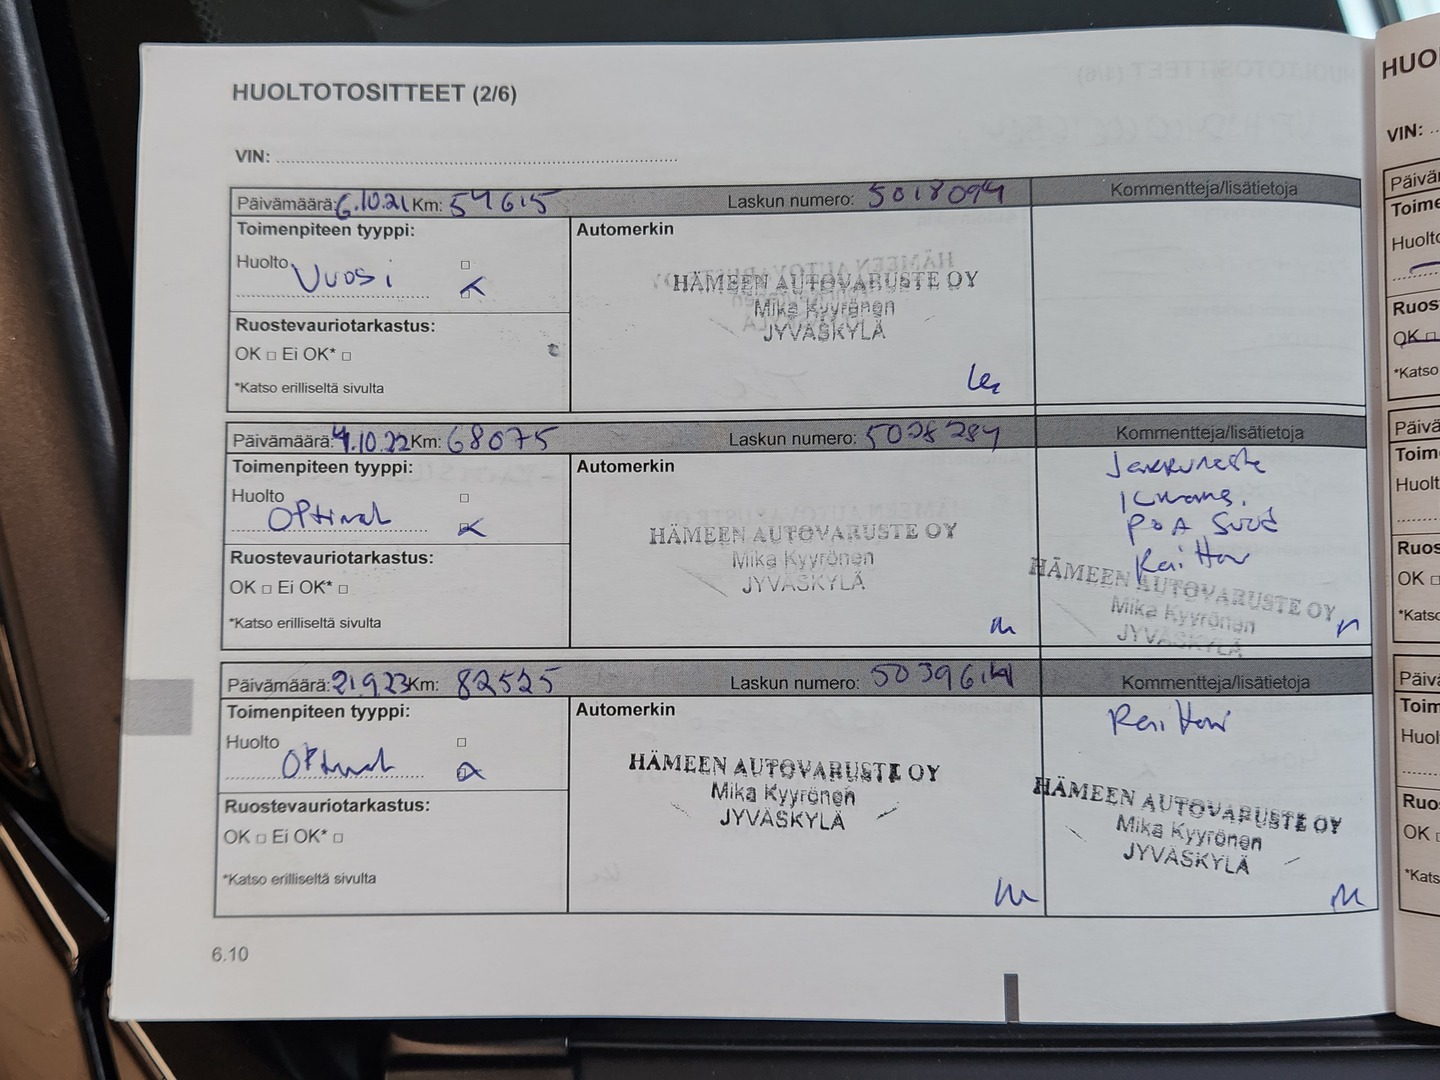 HUOLTOTOSITTEET (2/6)
VIN:
Päivämäärä: 6.10.21 Km: 54615 Laskun numero: 5018094 Kommentteja/lisätietoja
Toimenpiteen tyyppi: Automerkin
Huolto
Vuosi
HÄMEEN AUTOVARUSTE OY
Mika Kyyrönen
JYVÄSKYLÄ
Ruostevauriotarkastus:
OK □ Ei OK* □
*Katso erilliseltä sivulta
Päivämäärä: 4.10.22 Km: 68075 Laskun numero: 5028284 Kommentteja/lisätietoja
Toimenpiteen tyyppi: Automerkin
Huolto
Optimal
Jarruneste
Raitisw
HÄMEEN AUTOVARUSTE OY
Mika Kyyrönen
JYVÄSKYLÄ
HÄMEEN AUTOVARUSTE OY
Mika Kyyrönen
JYVÄSKYLÄ
Ruostevauriotarkastus:
OK □ Ei OK* □
*Katso erilliseltä sivulta
Päivämäärä: 21.9.23 Km: 82525 Laskun numero: Kommentteja/lisätietoja
Toimenpiteen tyyppi: Automerkin
Huolto
Optimal
HÄMEEN AUTOVARUSTE OY
Mika Kyyrönen
JYVÄSKYLÄ
HÄMEEN AUTOVARUSTE OY
Mika Kyyrönen
JYVÄSKYLÄ
Ruostevauriotarkastus:
OK □ Ei OK* □
*Katso erilliseltä sivulta
6.10
VIN: